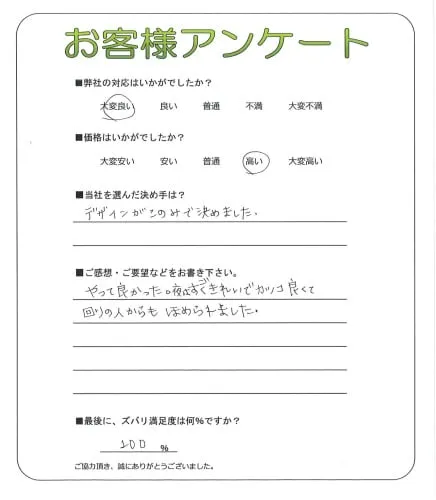 お客様アンケート
■弊社の対応はいかがでしたか？
大変良い 良い 普通 不満 大変不満
■価格はいかがでしたか？
大変安い 安い 普通 高い 大変高い
■当社を選んだ決め手は？
デザインがこのみで決めました.
■ご感想・ご要望などをお書き下さい。
やって良かった。夜はすごくきれいでカッコ良くて
回りの人からも ほめられました.
■最後に、ズバリ満足度は何％ですか？
100 ％
ご協力頂き、誠にありがとうございました。